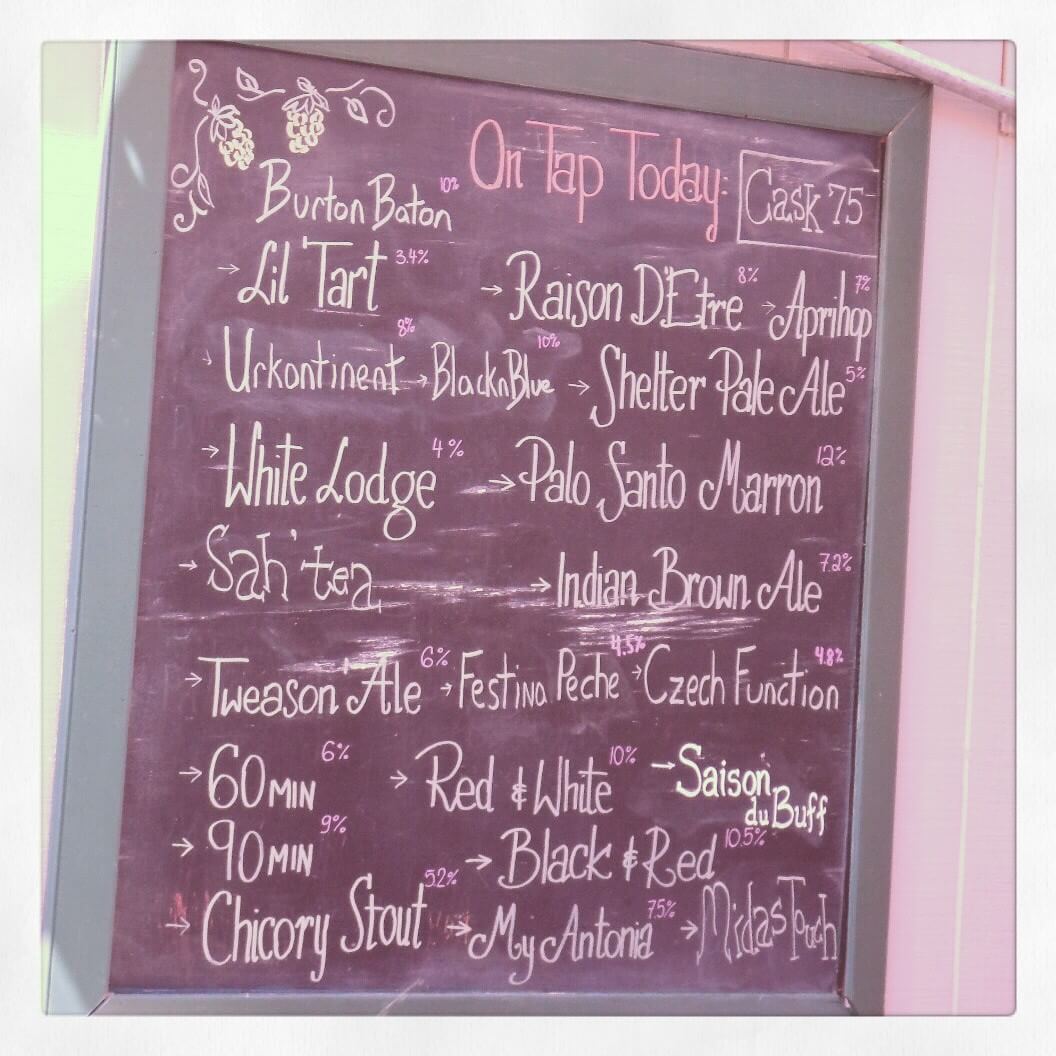 On Tap Today: Cask 75
Burton Baton 10%
→ Lil Tart 3.4% → Raison D'Etre 8% → Aprihop 7%
→ Urkontinent 8% → BlacknBlue 10% → Shelter Pale Ale 5%
→ White Lodge 4% → Palo Santo Marron 12%
→ Sah'tea → Indian Brown Ale 7.2%
→ Tweason'Ale 6% → Festina Peche 4.5% → Czech Function 4.8%
→ 60 MIN 6% → Red & White 10% → Saison
du Buff
→ 90 MIN 9% → Black & Red 10.5%
→ Chicory Stout 5.2% → My Antonia 7.5% → Midas Touch